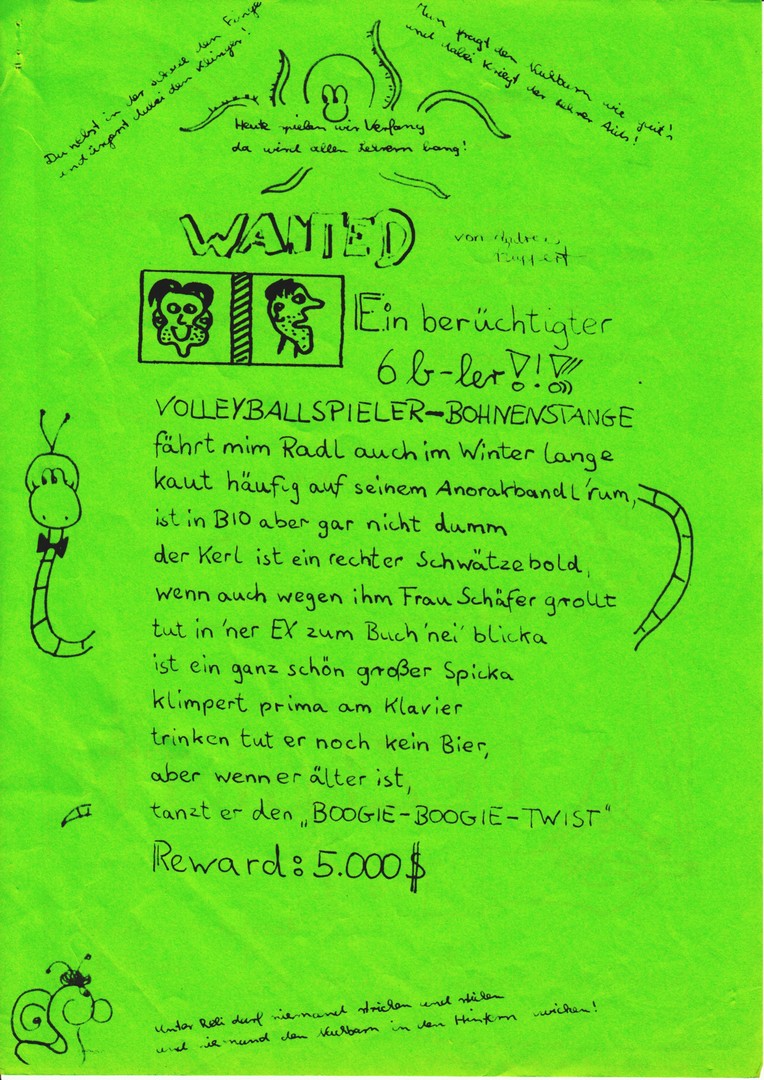 Du nebst in der stunde den Finger
und ärgerst dabei den Klinger!
Man fragt den Nachbarn wie geht's
und dabei kriegt der Lehrer Aids!
Heute spielen wir Verfang
da wird allen Lehrern bang!
WANTED
von Andreas
Ruppert
Ein berüchtigter
6 b-ler!!!
VOLLEYBALLSPIELER-BOHNENSTANGE
fährt mim Radl auch im Winter lange
kaut häufig auf seinem Anorakbandl 'rum,
ist in BIO aber gar nicht dumm
der Kerl ist ein rechter Schwätzebold,
wenn auch wegen ihm Frau Schäfer grollt
tut in 'ner EX zum Buch 'nei' blicka
ist ein ganz schön großer Spicka
klimpert prima am Klavier
trinken tut er noch kein Bier,
aber wenn er älter ist,
tanzt er den „BOOGIE-BOOGIE-TWIST"
Reward: 5.000 $
Unter Reli darf niemand stricken und
und niemand den Nachbarn in den Hintern zwicken!